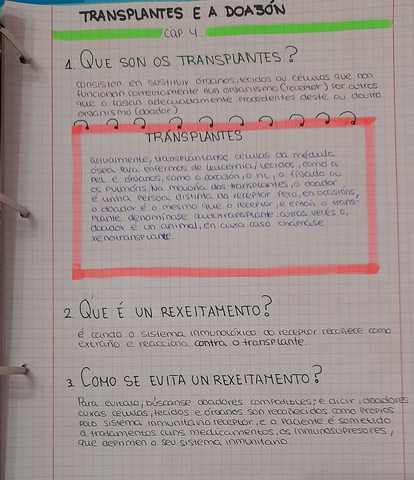 TRANSPLANTES E A DOAZÓN
CAP 4.
1. QUE SON OS TRANSPLANTES?
consisten en sustituir órganos, tecidos ou células que non
funcionan correctamente nun organismo (receptor) por outros
que o fagan adecuadamente procedentes deste ou doutro
organismo (doador)
TRANSPLANTES
actualmente, transplántanse células da médula
ósea para enfermos de leucemia; tecidos, como a
pel e órganos, como o corazón, o ril, o fígado ou
os pulmóns. Na maioría dos transplantes, o doador
é unha persoa distinta do receptor. Pero, en ocasións,
o doador é o mesmo que o receptor, e entón o trans-
plante denominase autotransplante. outras veces o
doador é un animal, en cuxo caso chámase
xenotransplante.
2. QUE É UN REXEITAMENTO?
é cando o sistema inmunolóxico do receptor recoñece como
extraño e reacciona contra o transplante.
3. COMO SE EVITA UN REXEITAMENTO?
Para evitalo, búscanse doadores compatibles; e dicir, doadores
cuxas células, tecidos e órganos son recoñecidos como propios
polo sistema inmunitario receptor, e o paciente é sometido
a tratamentos cuns medicamentos, os inmunosupresores,
que deprimen o seu sistema inmunitario.